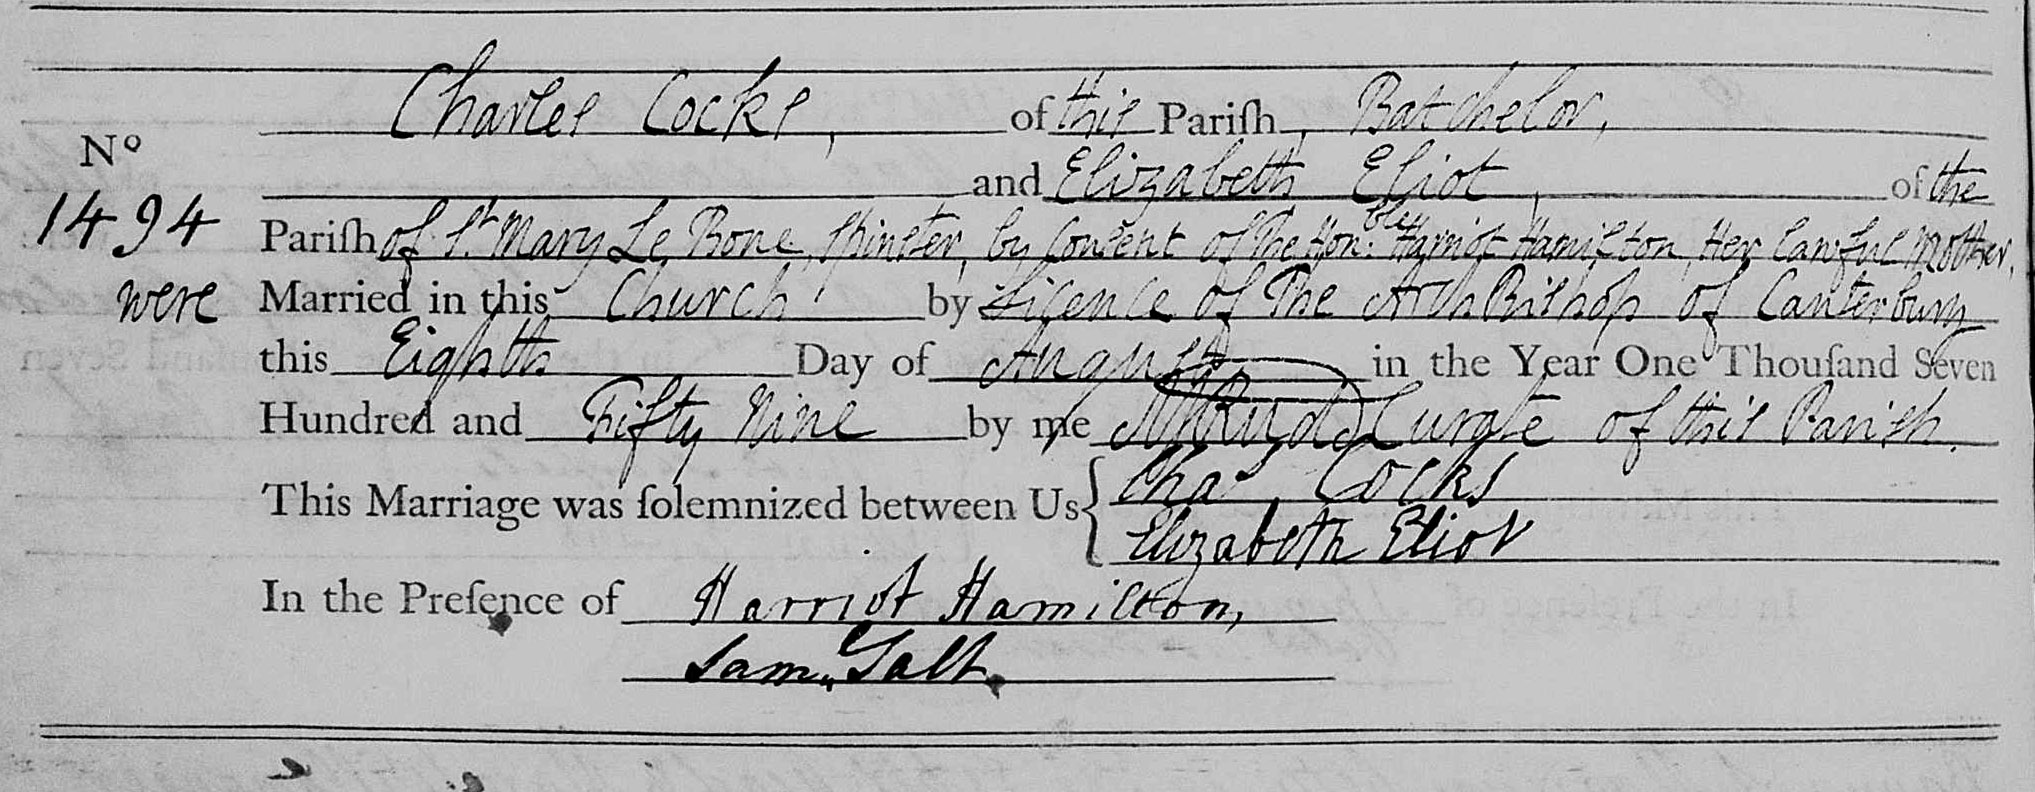 Charles Cocks, of this Pariſh, Batchelor,
No
and Elizabeth Eliot, of the
1494
Pariſh of St. Mary Le Bone, Spinster, by Consent of The Honble: Harriot Hamilton, Her lawful Mother,
were Married in this Church by Licence of The ArchBishop of Canterbury
this Eighth Day of August in the Year One Thouſand Seven
Hundred and Fifty Nine by me Curate of this Parish.
This Marriage was ſolemnized between Us { Chas. Cocks
Elizabeth Eliot
In the Preſence of Harriot Hamilton,
Saml. Salt.